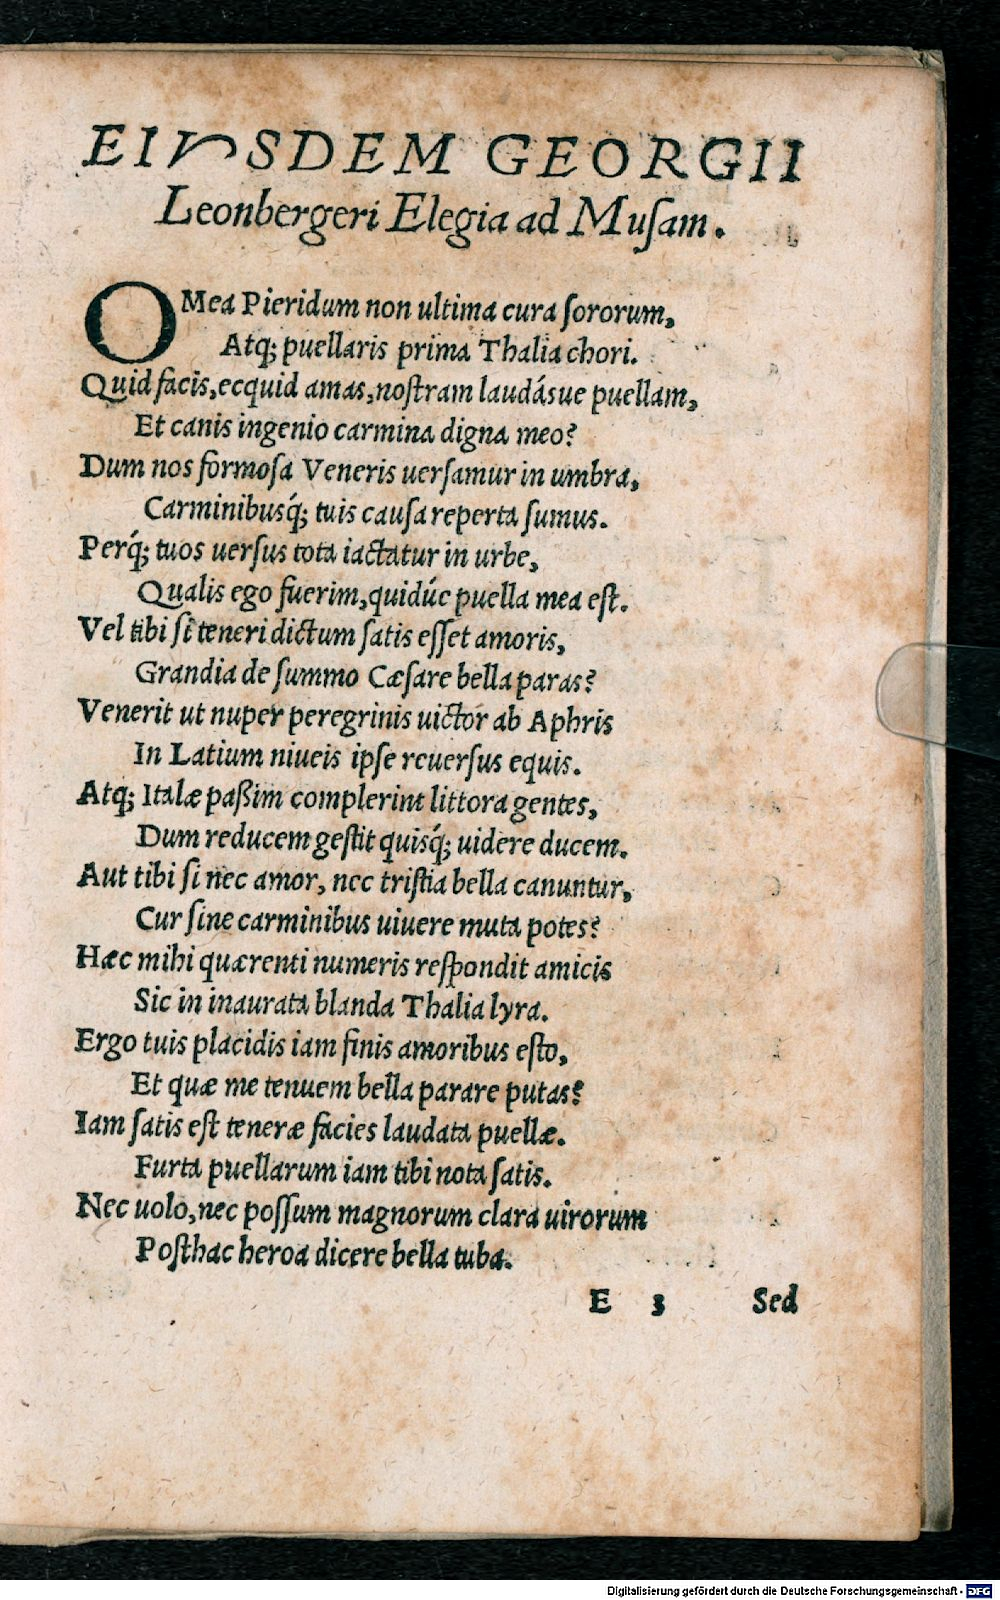 EIVSDEM GEORGII
Leonbergeri Elegia ad Muſam.
O Mea Pieridum non ultima cura ſororum,
Atq; puellaris prima Thalia chori.
Quid facis, ecquid amas, noſtram laudásue puellam,
Et canis ingenio carmina digna meo?
Dum nos formoſa Veneris uerſamur in umbra,
Carminibusq́; tuis cauſa reperta ſumus.
Perq́; tuos uerſus tota iactatur in urbe,
Qualis ego fuerim, quidúe puella mea eſt.
Vel tibi ſi teneri dictum ſatis eſſet amoris,
Grandia de ſummo Cæſare bella paras?
Venerit ut nuper peregrinis uictor ab Aphris
In Latium niueis ipſe reuerſus equis.
Atq; Italæ paßim complerint littora gentes,
Dum reducem geſtit quisq́; uidere ducem.
Aut tibi ſi nec amor, nec triſtia bella canuntur,
Cur ſine carminibus uiuere muta potes?
Hæc mihi quærenti numeris reſpondit amicis
Sic in inaurata blanda Thalia lyra.
Ergo tuis placidis iam finis amoribus eſto,
Et quæ me tenuem bella parare putas?
Iam ſatis eſt teneræ facies laudata puellæ.
Furta puellarum iam tibi nota ſatis.
Nec uolo, nec poſſum magnorum clara uirorum
Poſthac heroa dicere bella tuba.
E 3 Sed
Digitalisierung gefördert durch die Deutsche Forschungsgemeinschaft - DFG